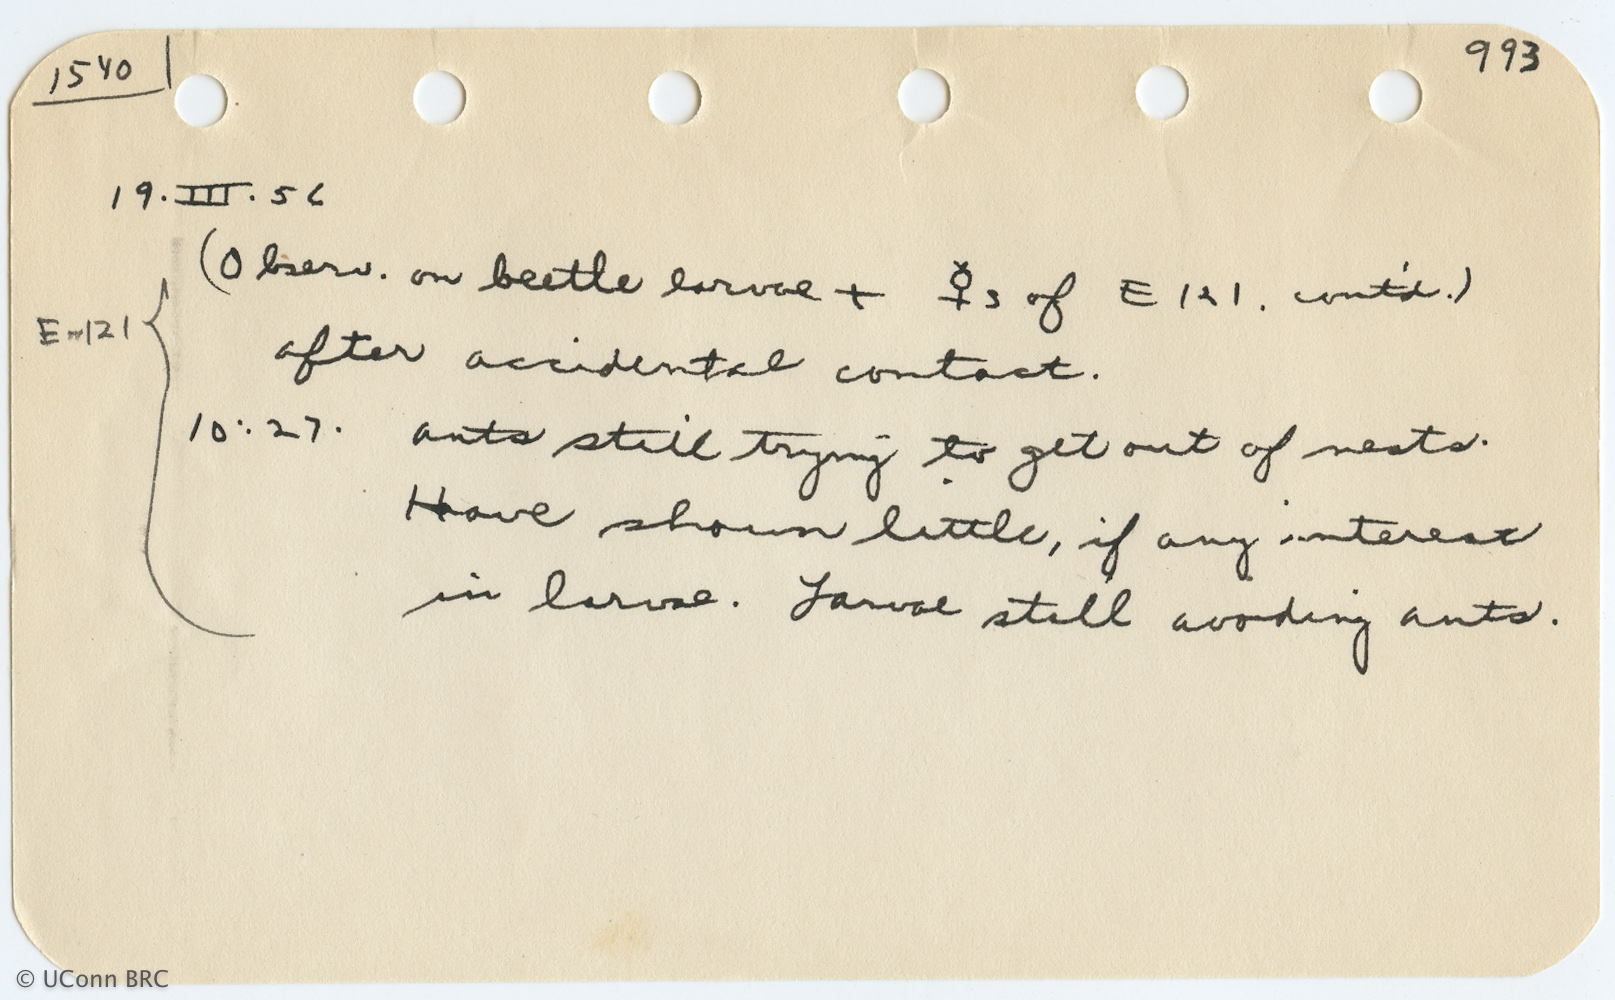 1540
993
19.III.56
(Observ. on beetle larvae + ☿s of E 121. cont'd.)
E-121
after accidental contact.
10:27. ants still trying to get out of nests.
Have shown little, if any interest
in larvae. Larvae still avoiding ants.
© UConn BRC